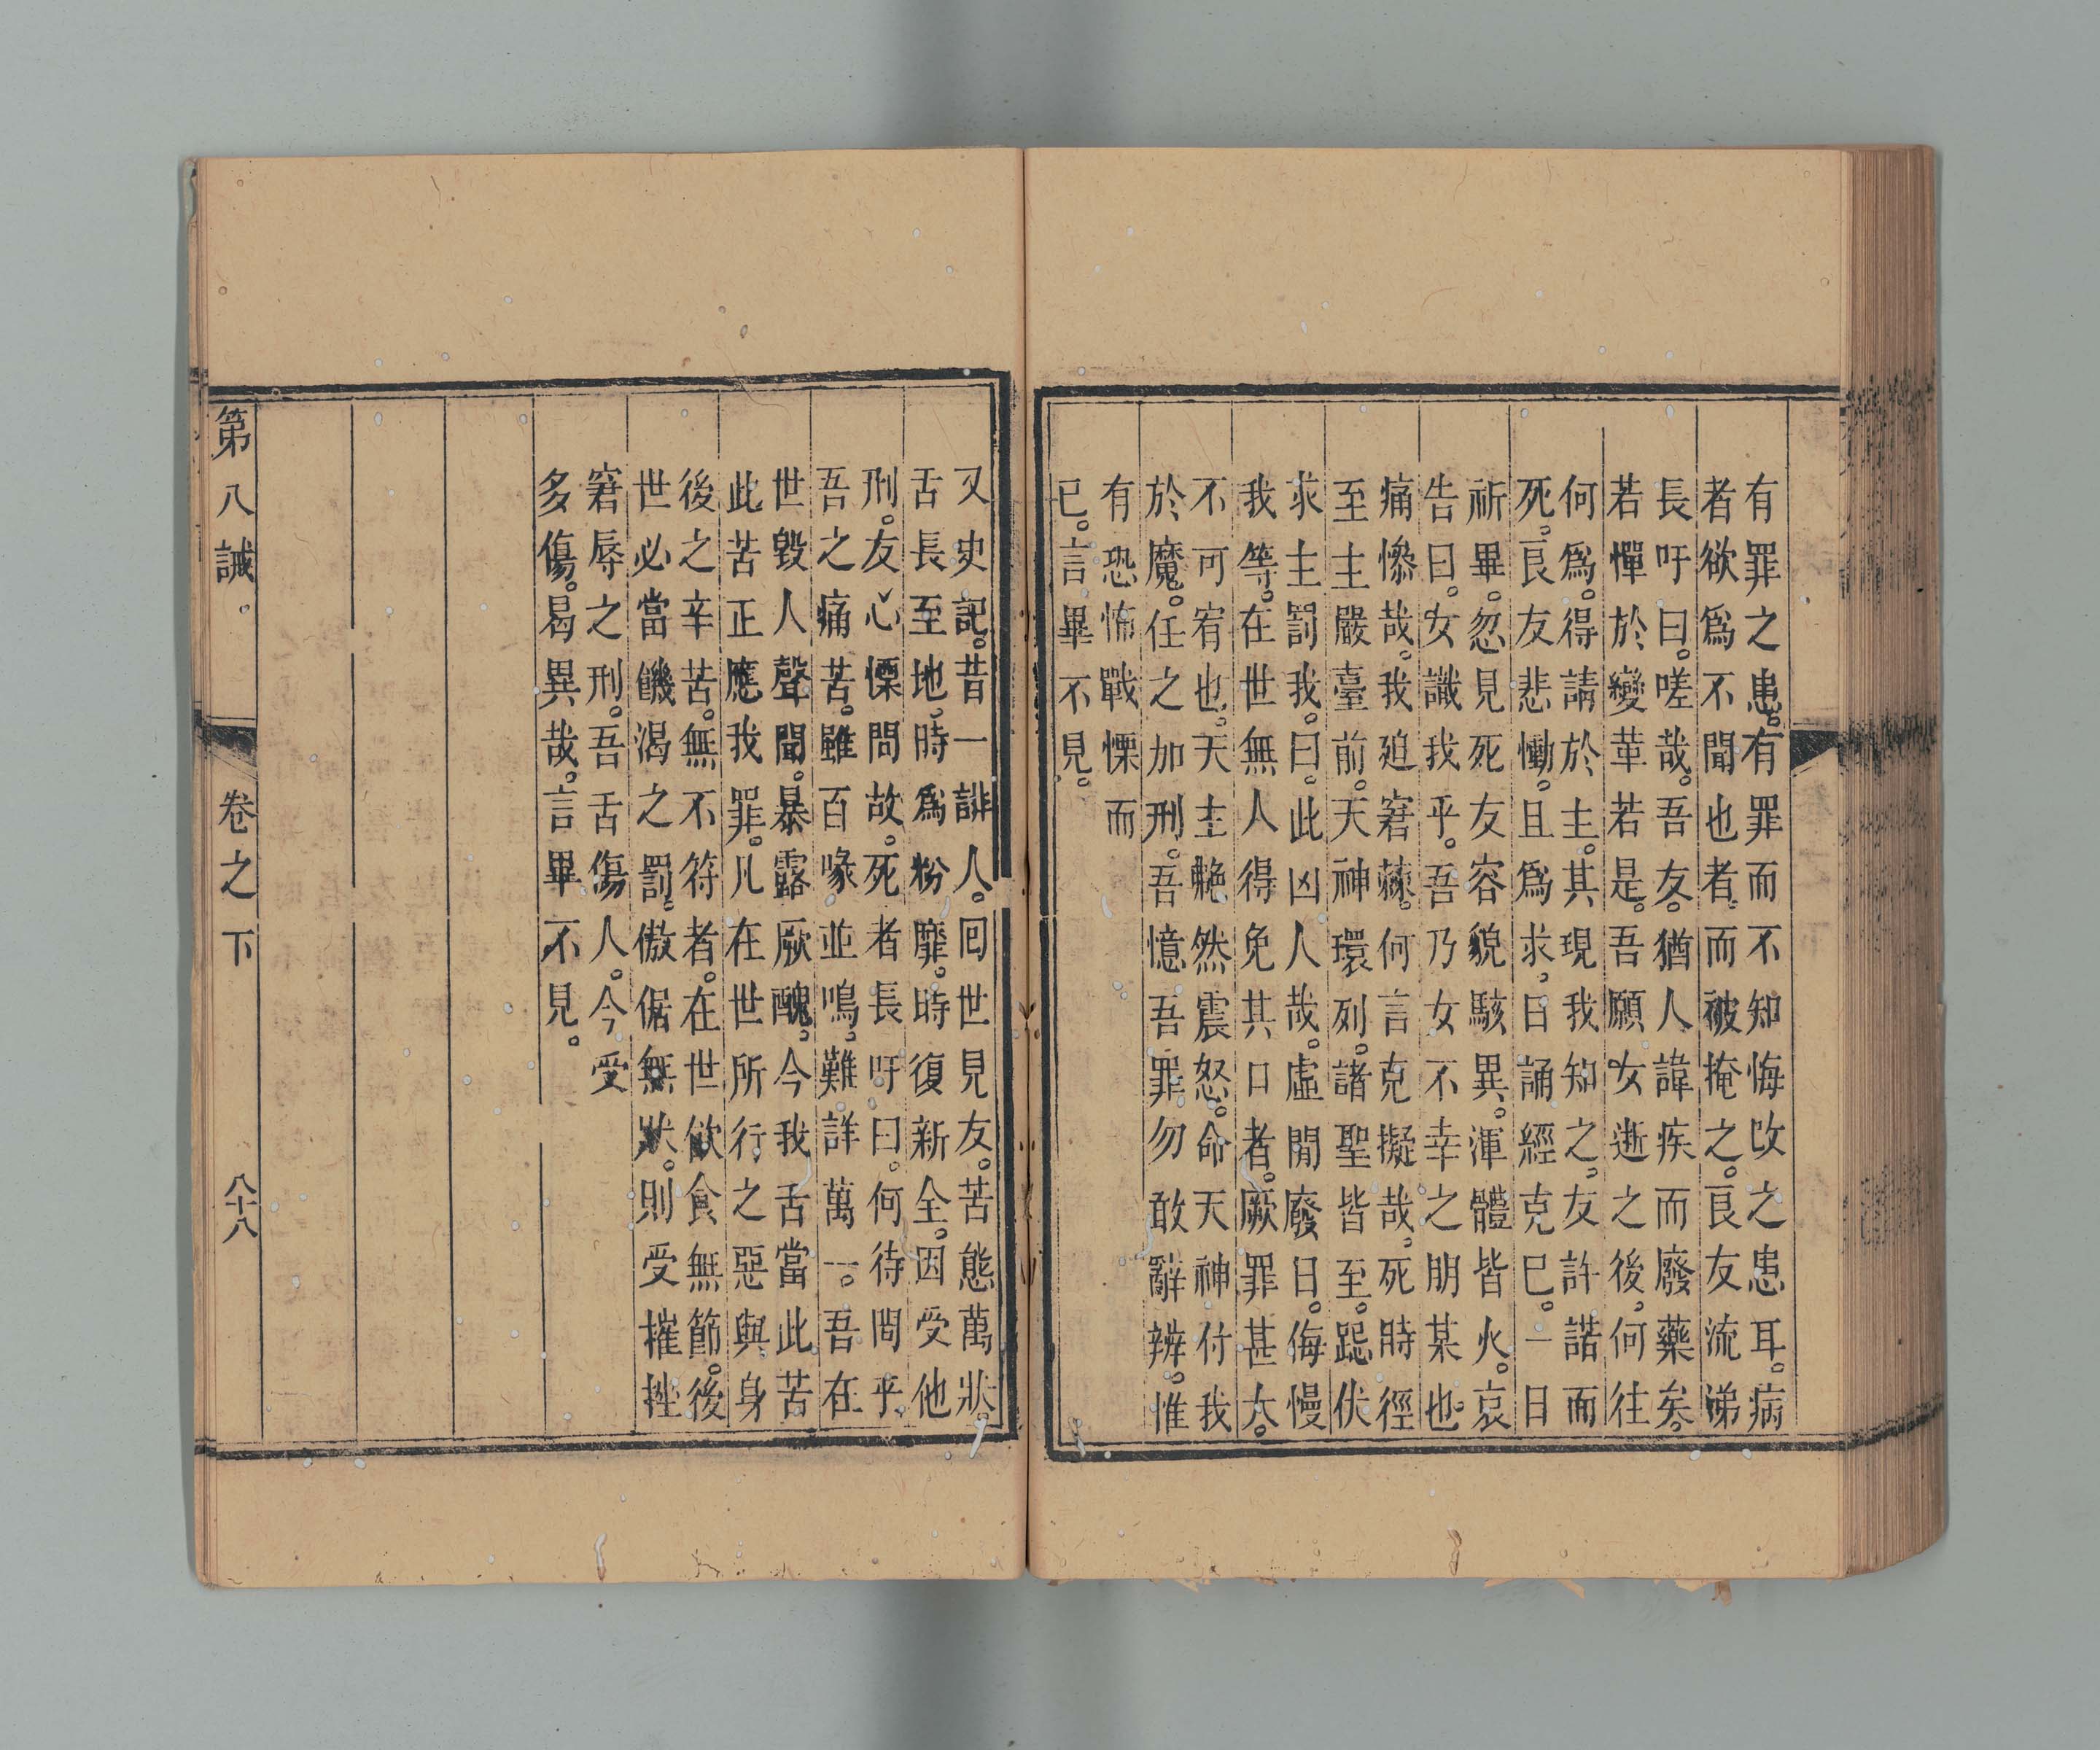 有罪之患。有罪而不知悔改之患耳。病
者欲爲不聞也者。而被掩之。良友流涕
長吁曰。嗟哉。吾友。猶人諱疾而廢藥矣。
若憚於變革若是。吾願女逝之後。何往
何爲。得請於主。其現我知之。友許諾而
死。良友悲慟。且爲求。日誦經克巳。一日
祈畢。忽見死友容貌駭異。渾體皆火。哀
告曰。女識我乎。吾乃女不幸之朋某也。
痛慘哉。我廹窘棘。何言克擬哉。死時徑
至主嚴臺前。天神環列。諸聖皆至。跽伏
求主罰我。曰。此凶人哉。虛閒廢日。侮慢
我等。在世無人得免其口者。厥罪甚大。
不可宥也。天主艴然震怒。命天神付我
於魔。任之加刑。吾憶吾罪勿敢辭辨。惟
有恐怖戰慄而
巳。言畢不見。
又史記。昔一誹人。回世見友。苦態萬狀。
舌長至地。時爲粉靡。時復新全。因受他
刑。友心慄問故。死者長吁曰。何待問乎
吾之痛苦。雖百喙並鳴。難詳萬一。吾在
世毀人聲聞。暴露厥醜。今我舌當此苦
此苦正應我罪。凡在世所行之惡與身
後之辛苦。無不符者。在世飲食無節。後
世必當饑渴之罰。傲倨無狀。則受摧挫
窘辱之刑。吾舌傷人。今受
多傷。曷異哉。言畢不見。
第八誡
卷之下
八十八